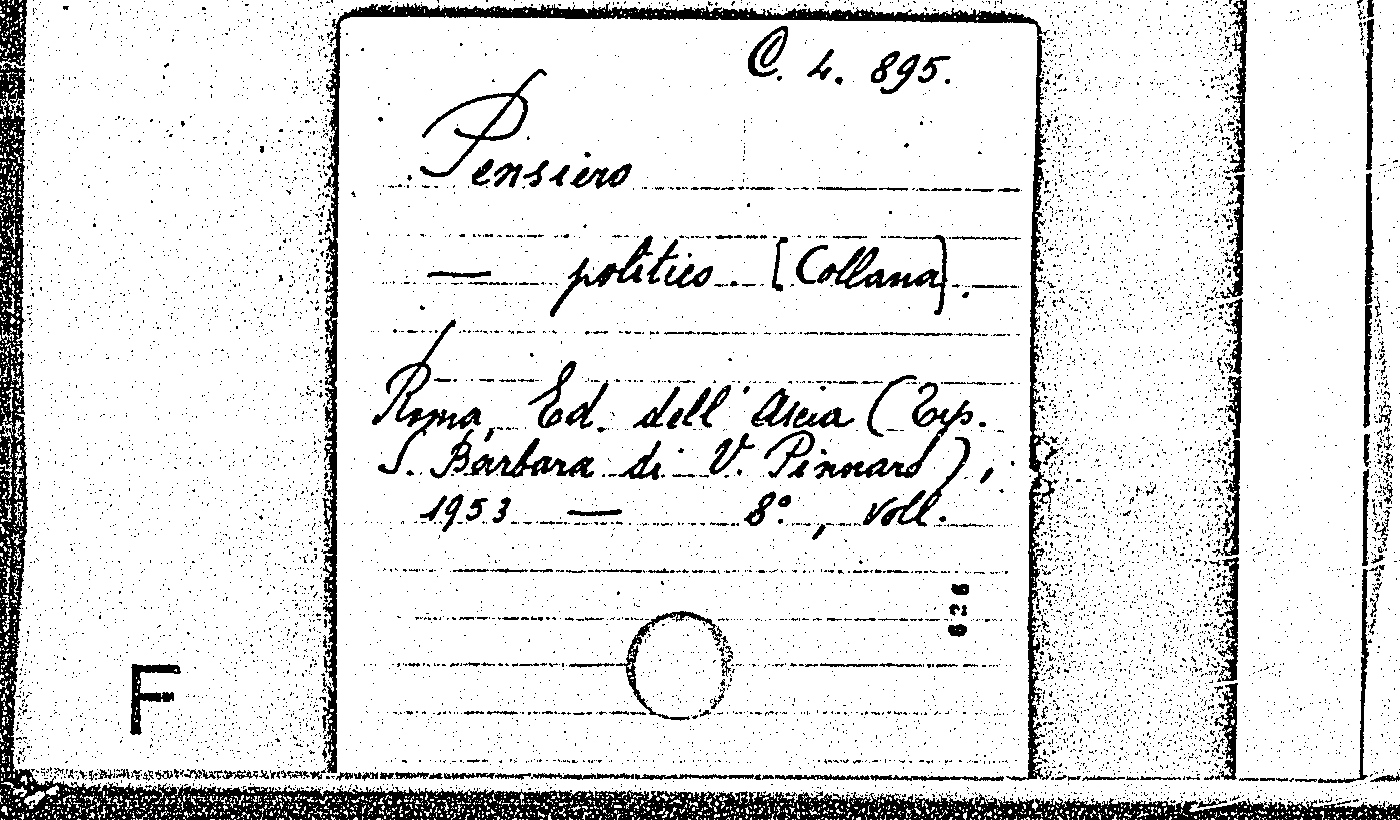 C. 4. 895.
Pensiero
— politico. [Collana].
Roma, Ed. dell'Ascia (Tip.
S. Barbara di V. Pinnarò),
1953 — 8°, voll.
F